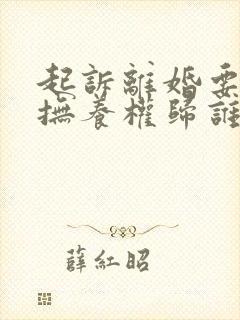 起訴離婚要
撫養權歸誰
薛紅昭